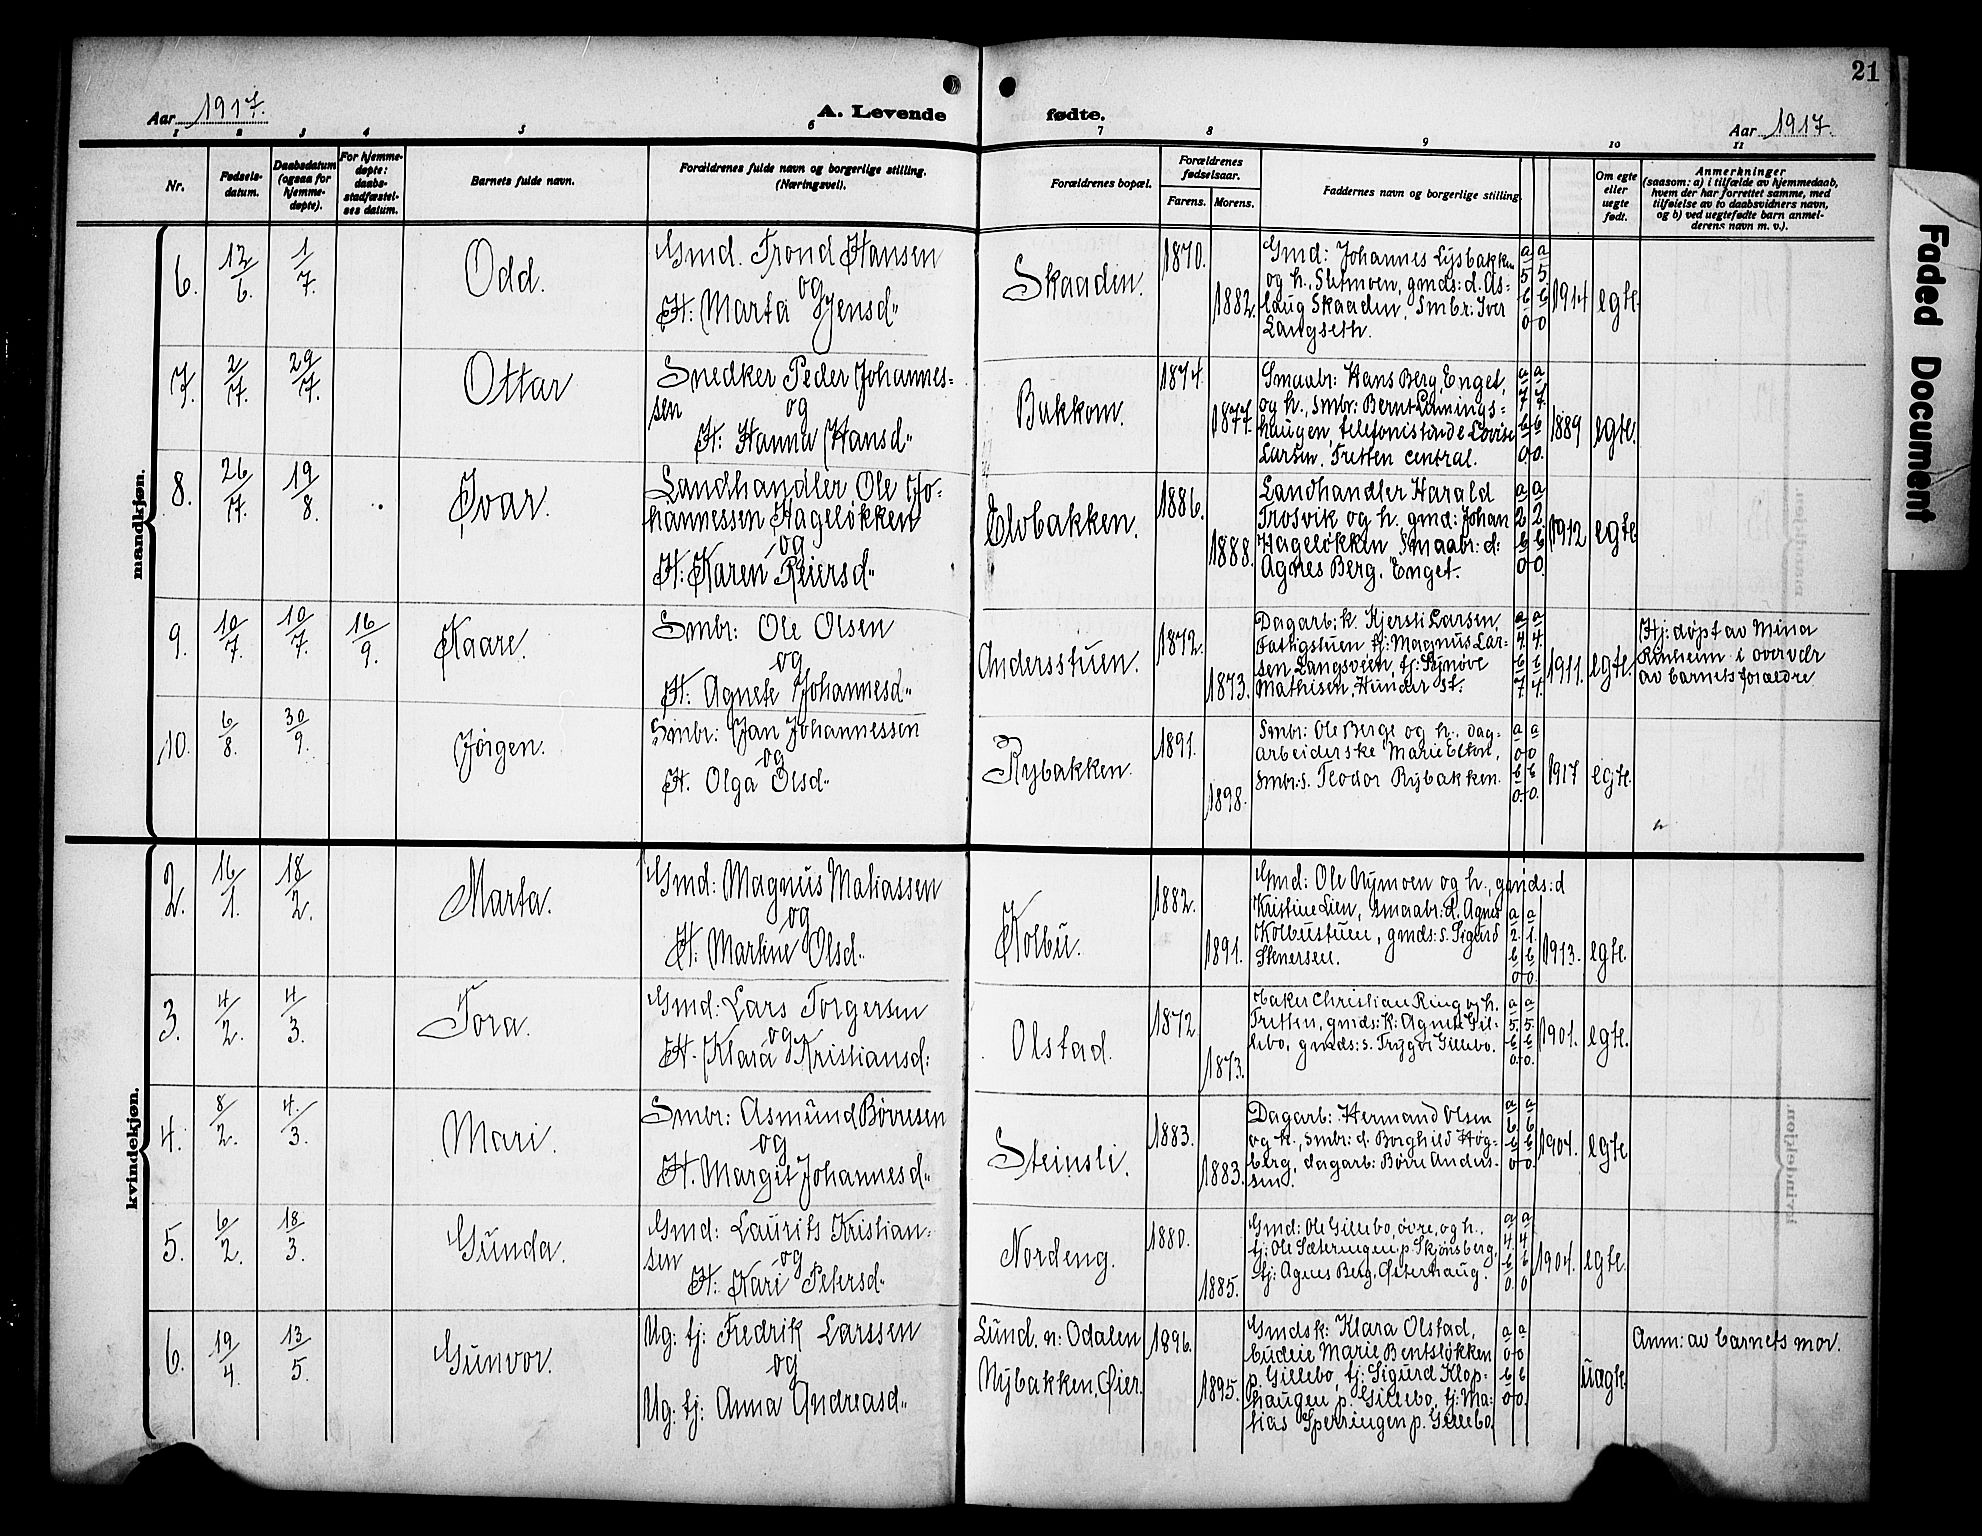 21
Aar 1917.
A. Levende
fødte.
Aar 1917.
1 2 3 4 5 6 7 8 9 10 11
Nr.
Fødsels-
datum.
Daabsdatum
(ogsaa for
hjemme-
døpte).
For hjemme-
døpte:
daabs-
stadfæstel-
ses datum.
Barnets fulde navn.
Forældrenes fulde navn og borgerlige stilling.
(Næringsvei).
Forældrenes bopæl.
Forældrenes
fødselsaar.
Farens. Morens.
Faddernes navn og borgerlige stilling.
Om egte
eller
uegte
født.
Anmerkninger
(saasom: a) i tilfælde av hjemmedaab,
hvem der har forrettet samme, med
tilføielse av to daabsvidners navn,
og b) ved uegtefødte barn anmel-
derens navn m. v.).
mandkjøn.
6. 13/6. 1/7. Odd.
Gmd. Trond Hansen
og
H: Marta Jensd"
Skaaden. 1870. 1882.
Gmd: Johannes Lysbakken
og h., Sletmoen, gmds: d. As-
laug Skaaden, Smbr: Iver
Langseth.
a 5 b 0 a 5 b 0 1914 egte.
7. 2/7. 29/7. Ottar
Snedker Peder Johannes=
sen
og
H: Hanna Hansd"
Bakkom. 1874. 1877.
Smaabr: Hans Berg, Enget,
og h., smbr: Bernt Lannings=
haugen, telefonistinde Lovise
Larsen, Tretten central.
a 7 b 0. a 7. b 0. 1889 egte.
8. 26/7. 19/8. Ivar.
Landhandler Ole Jo-
hannessen Hageløkken
og
H: Karen Reiersd"
Elvbakken. 1886. 1888.
Landhandler Harald
Trosvik og h., gmd: Johan
Hageløkken, Smaabr: d:
Agnes Berg, Enget.
a 2 b 0 a 2. b 0. 1912 egte
9. 10/7. 10/7. 16/9. Kaare.
Smbr: Ole Olsen
og
H. Agnete Johannesd"
Andersstuen. 1872. 1873.
Dagarb: k. Kjersti Larsen,
Fatigstuen, tj: Magnus Lar-
sen Langsveen, tj: Synøve
Mathisen, Hunder st.
a 4. b 7 a 4. b 4. 1911. egte.
Hj: døpt av Mina
i overvær
av barnets forældre
10. 6/8. 30/9. Jörgen.
Smbr: Jan Johannessen
og
H. Olga Olsd"
Rybakken. 1891. 1898.
Smbr: Ole Berge og h., dag=
arbeiderske Marie Elton,
Smbr:s. Teodor Rybakken.
a 0 b 0. a 0 b 0. 1917 egte.
kvindekjøn.
2. 16/1. 18/2. Marta.
Gmd: Magnus Matiassen
og
H. Martine Olsd"
Kolbu. 1882. 1891.
Gmd: Ole Nymoen og h., gmds: d
Kristine Lien, smaabr: d. Agnes
Kolbustuen, gmds: s. Sigurd
Stenersen.
a 2. b 0 a 1. b 0. 1913. egte.
3. 4/2. 4/3. Tora.
Gmd: Lars Torgersen
og
H. Klara Kristiansd:
Olstad. 1872 1873.
baker Christian Ring og h.
Tretten, gmds: k: Agnete Gil-
lebo, gmds: s. Trygve Gillebo.
a 5. b 0. a 5. b 0. 1901. egte.
4. 8/2. 4./3. Mari.
Smbr: Asmund Børresen
og
H. Margit Johannesd"
Steinsli. 1883. 1883.
Dagarb: Hermand Olsen
og h., smbr: d. Borghild Høg-
berg, dagarb: Børre Anders-
sen.
a 6 b 0 a 6 b 0. 1904. egte
5. 6/2. 18/3. Gunda.
Gmd: Laurits Kristian-
sen
og
H. Kari Petersd"
Nordeng. 1880. 1885.
Gmd: Ole Gillebo, øvre, og h.
tj: Ole Sæteringen p. Skjønsberg,
tj: Agnes Berg, Østerhaug.
a 4. b 0 a 4 b 0 1904. egte.
6. 19/4. 13/5. Gunvor.
Ug: tj: Fredrik Larssen
og
Ug: tj: Anna Andreasd"
Lund. n: Odalen
Nybakken, Øier.
1896. 1895.
Gmdsk: Klara Olstad,
budeie Marie Bentsløkken
p. Gillebo, tj: Sigurd Klop-
haugen p. Gillebo, tj: Ma-
tias Sperringen p. Gillebo.
a 0 b 0 a 0 b 0. uegte
Anm: av barnets mor.
Faded Document